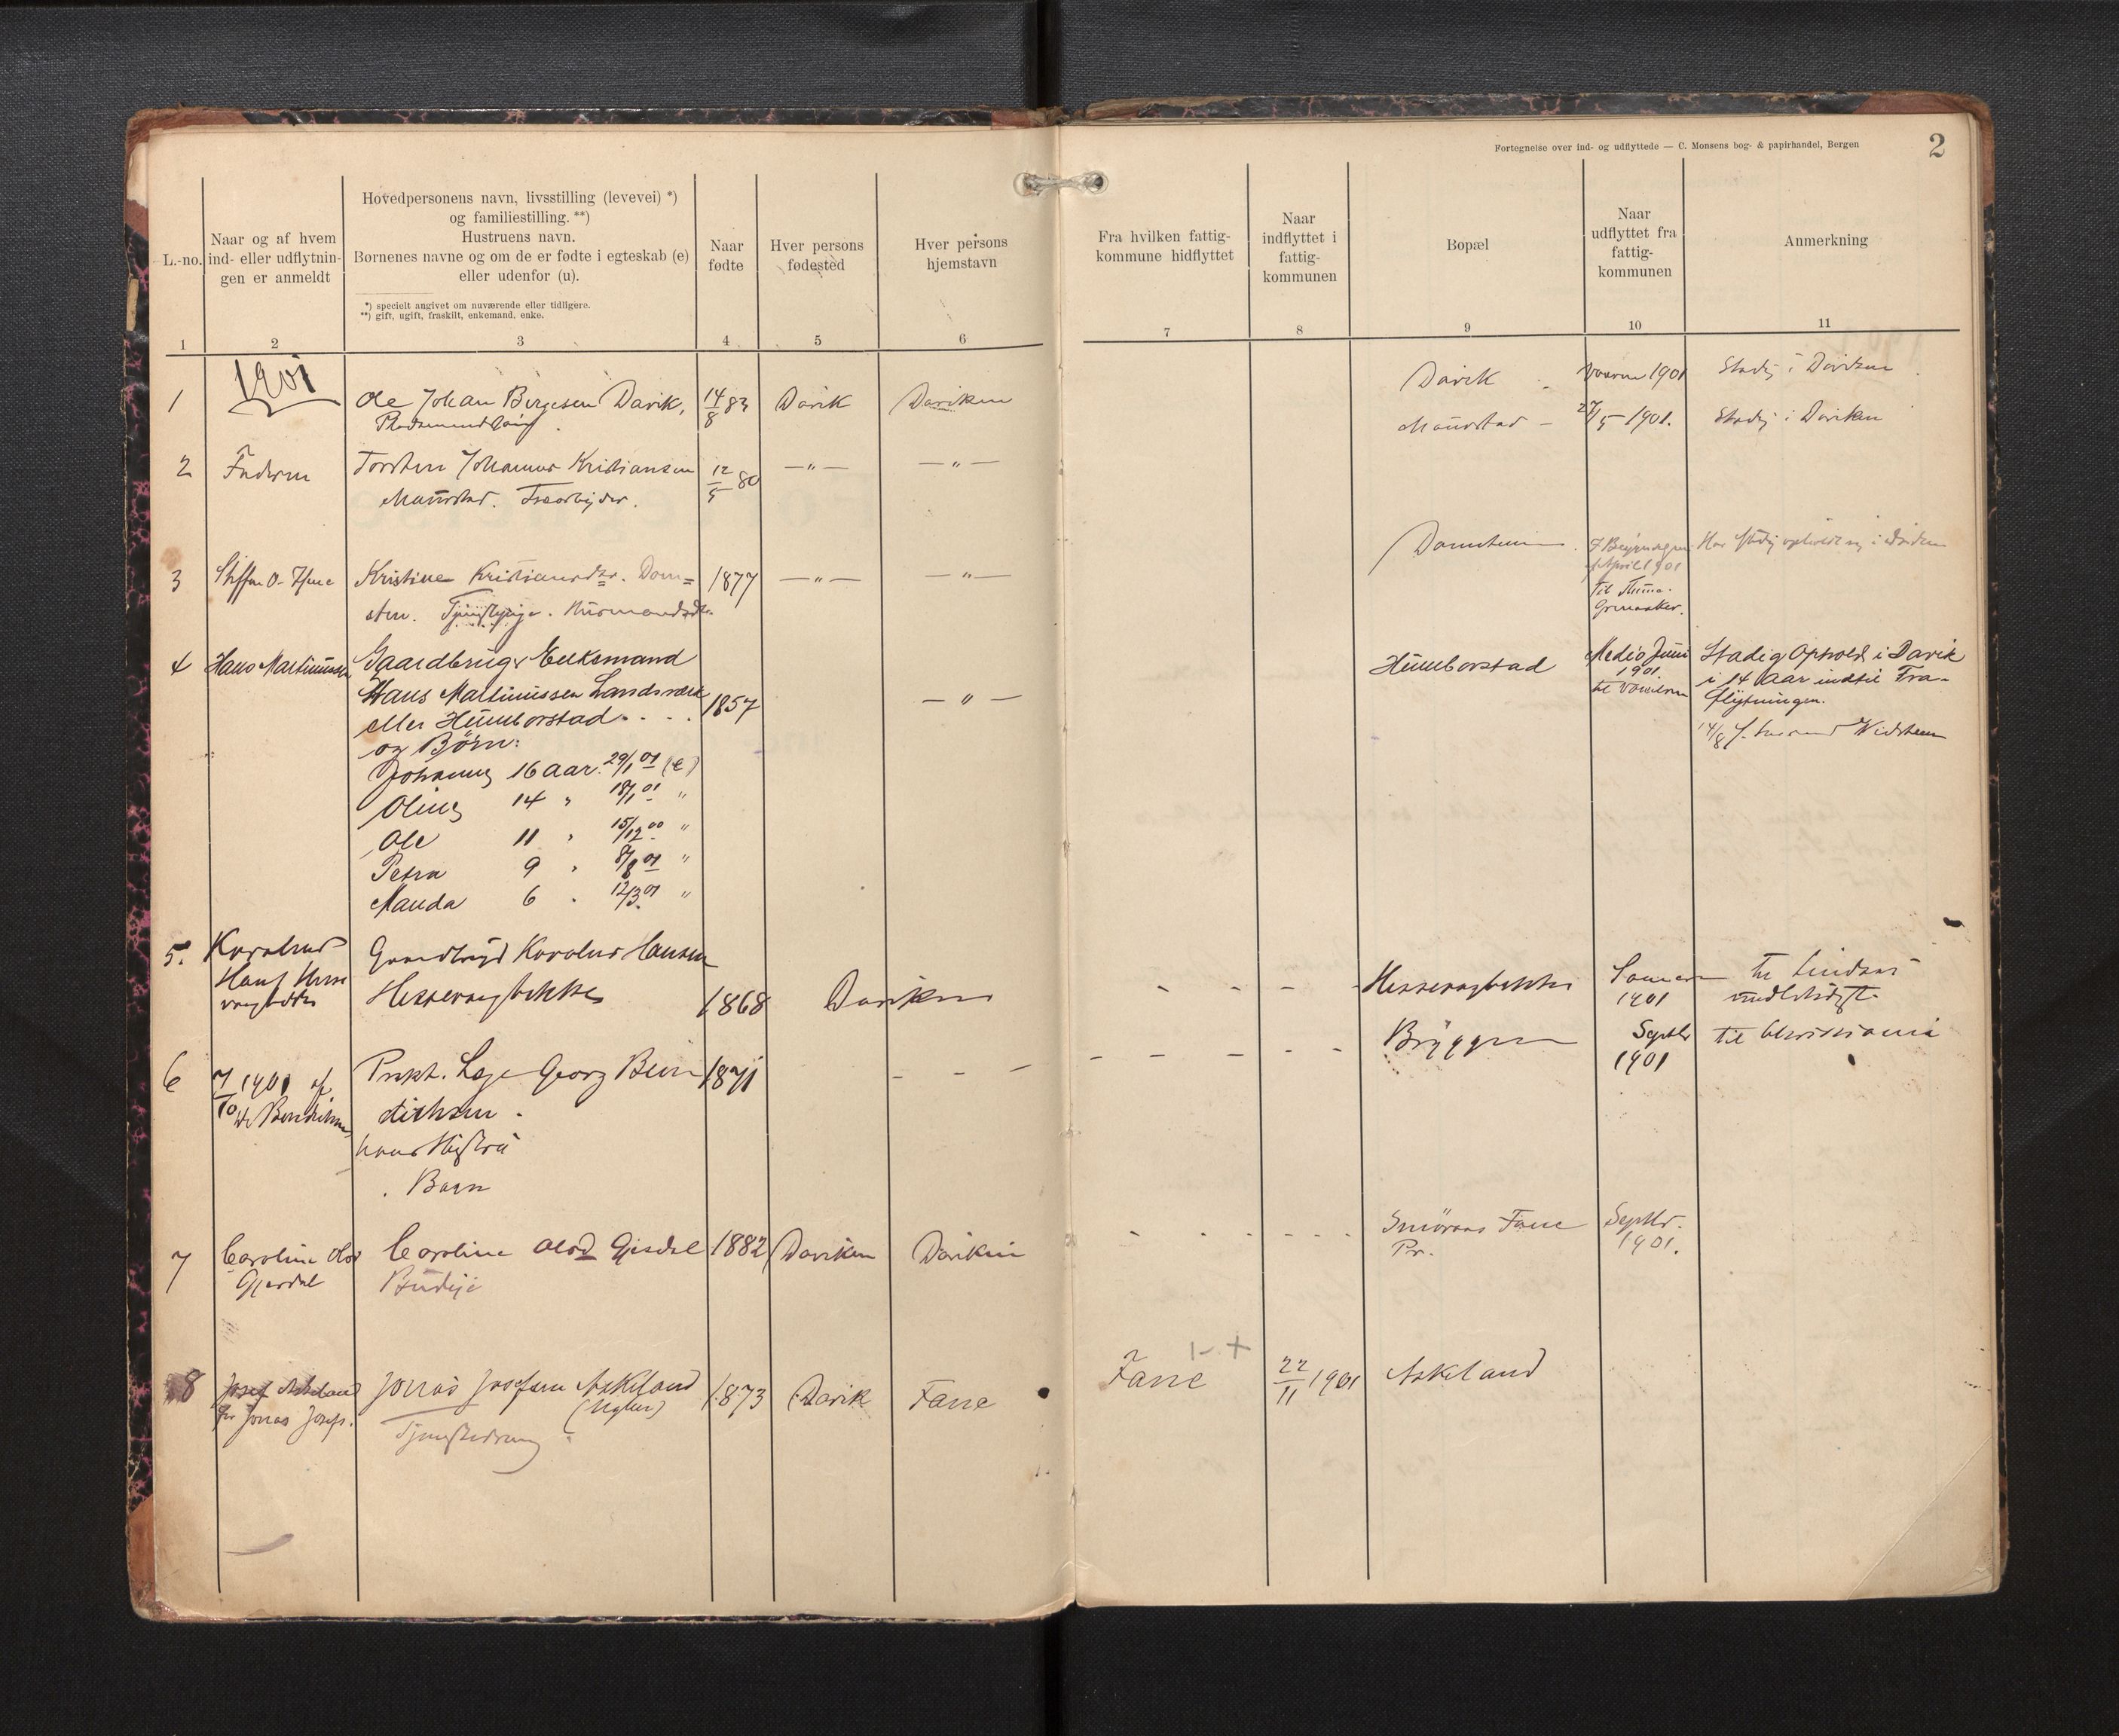 Fortegnelse over ind- og udflyttede — C. Monsens bog- & papirhandel, Bergen
2
L.-no.
Naar og af hvem
ind- eller udflytnin-
gen er anmeldt
Hovedpersonens navn, livsstilling (levevei) *)
og familiestilling. **)
Hustruens navn.
Børnenes navne og om de er fødte i egteskab (e)
eller udenfor (u).
*) specielt angivet om nuværende eller tidligere.
**) gift, ugift, fraskilt, enkemand, enke.
Naar
fødte
Hver persons
fødested
Hver persons
hjemstavn
Fra hvilken fattig-
kommune hidflyttet
Naar
indflyttet i
fattig-
kommunen
Bopæl
Naar
udflyttet fra
fattig-
kommunen
Anmerkning
1 2 3 4 5 6 7 8 9 10 11
1901
1 Ole Johan Bergesen Davik, 14/8 83 Davik Daviken Davik Vaaren 1901 Stadig i Daviken
2 Faderen Torsten Johannes Kristiansen 12/5 80 —"— —"— Maurstad — 27/5 1901. Stadig i Daviken
Maurstad. Træarbejder.
3 Kristine Kristiansdtr. Dom= 1877 —"— —"— Domstein April 1901 Har stadig opholdt sig i Daviken
sten. Tjenstepige. Husmandsdtr.
Til
4 Hans Martinussen Gaardbruger Enkemand
Hans Martinussen Landsverk
eller Humborstad . . . 1857 — " — Humborstad Medio Juni
1901
til
Stadig Ophold i Davik
i 14 Aar indtil Fra-
flytningen.
14/8
og Børn:
Johannes 16 Aar. 29/1 01 (e)
Oline 14 " 18/1 01 "
Ole 11 " 15/12 00 "
Petra 9 " 8/8 01 "
Manda 6 " 12/3 01 "
5. Karolus
Hans
Gaardbrug Karolus Hansen
1868 Daviken 1901 til
6 7/10 1901 af
Prakt. Læge Georg Ben 1871 — — — Bryggen Septbr
1901
til Christiania
dichsen.
hans Hustru
. Barn
7 Caroline Olsd
Gjerdal
Caroline Olsd Gjerdal 1882 Daviken Daviken Fane
Pr.
Septbr.
1901.
Budeie
8 Josef Askeland
for Jonas Josefs.
Jonas Josefsen Askeland
1873 Davik Fane Fane 22/11 1901 Askeland
Tjenestedreng